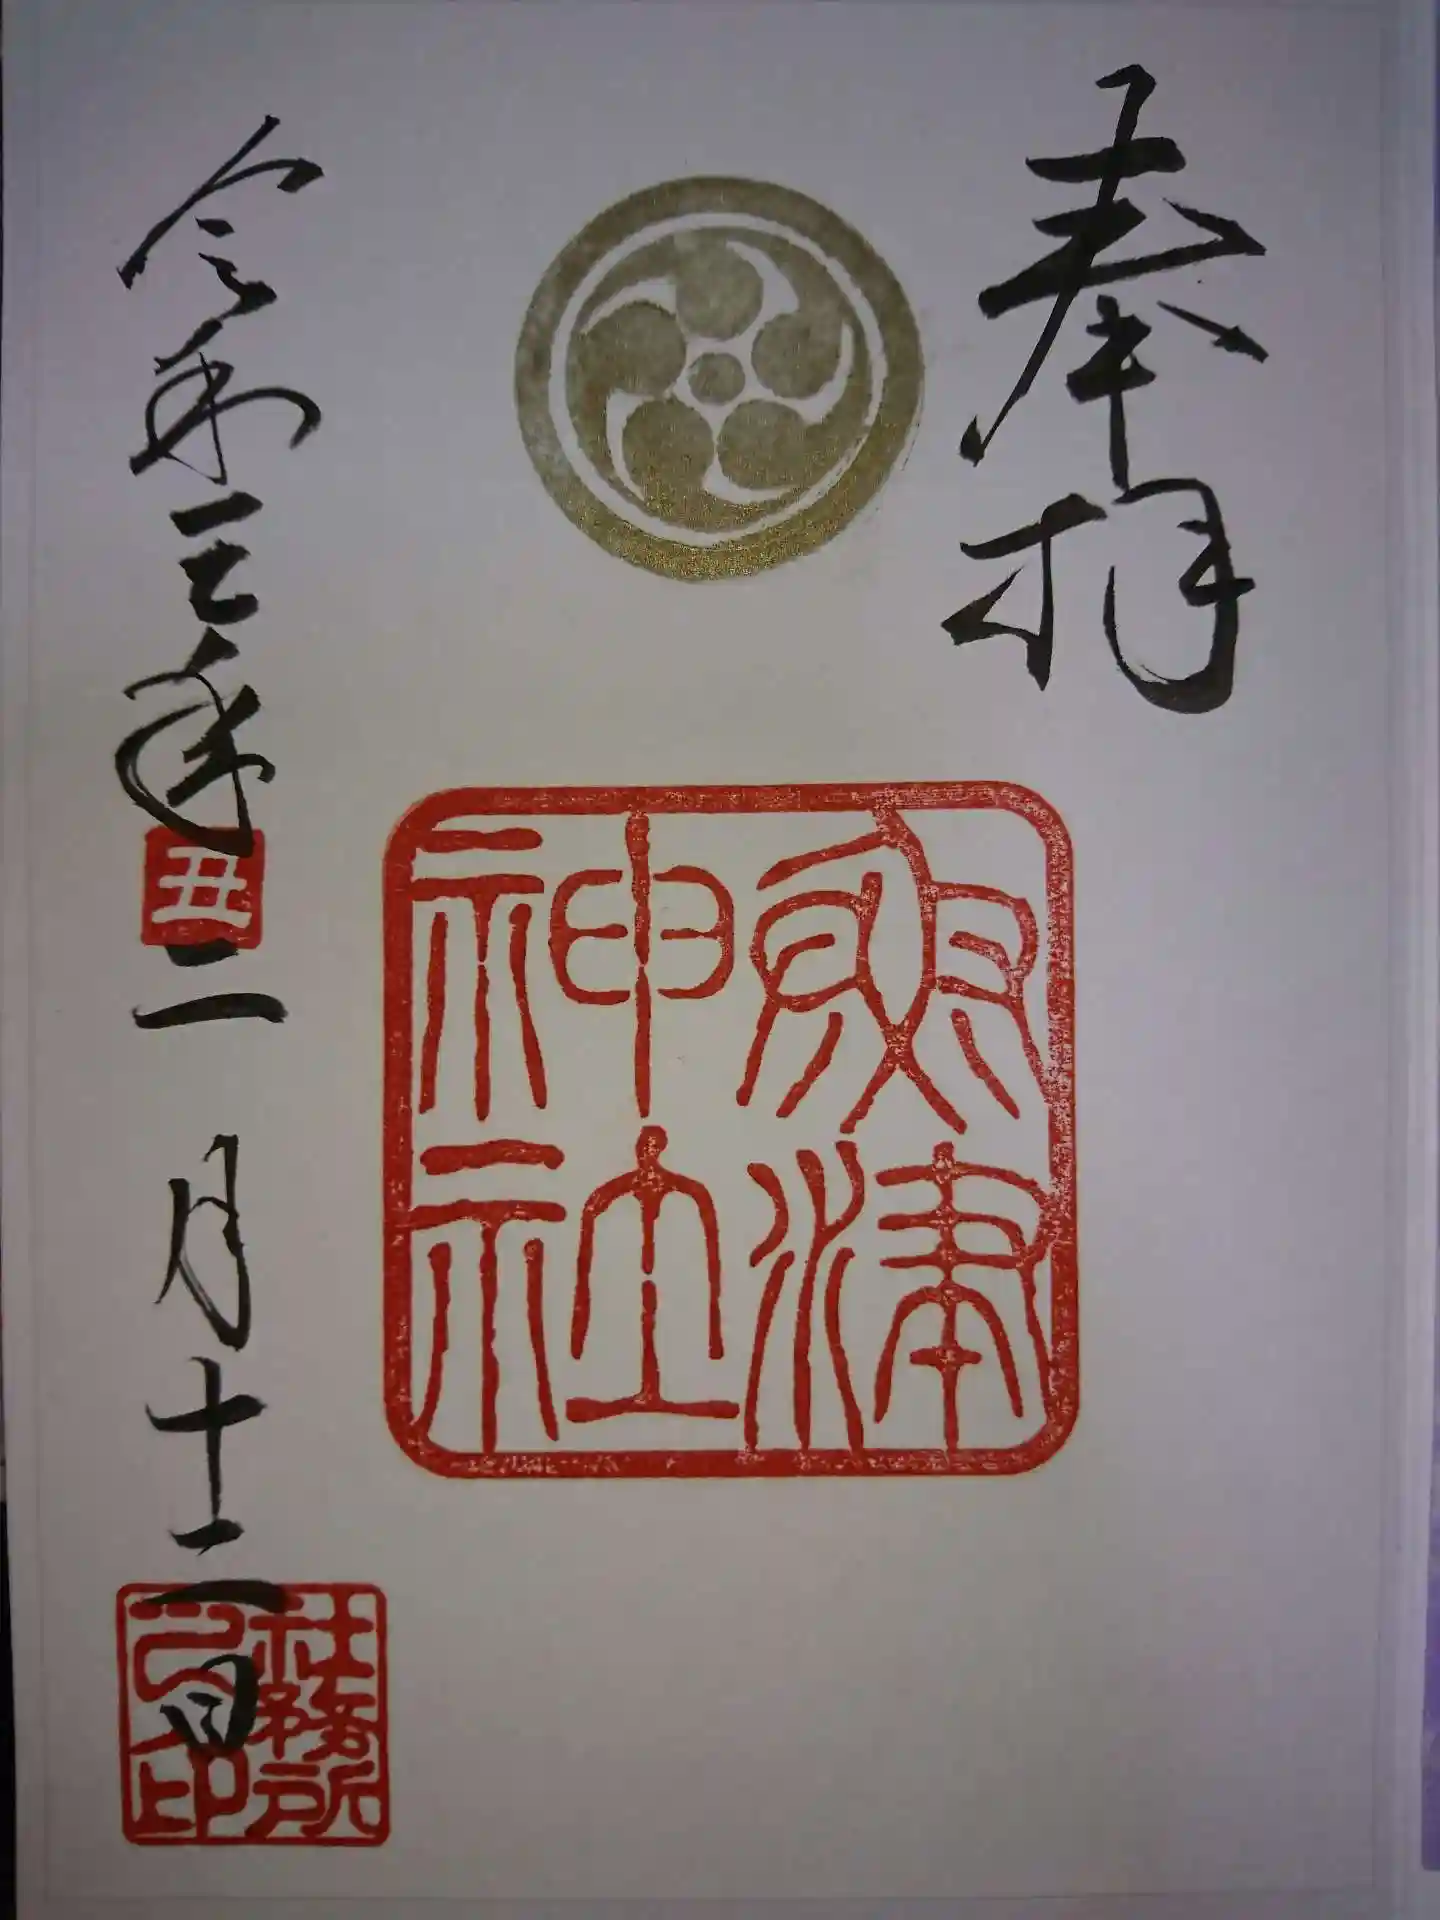 奉拝
津神社
令和三年丑二月十二日
社務所
印